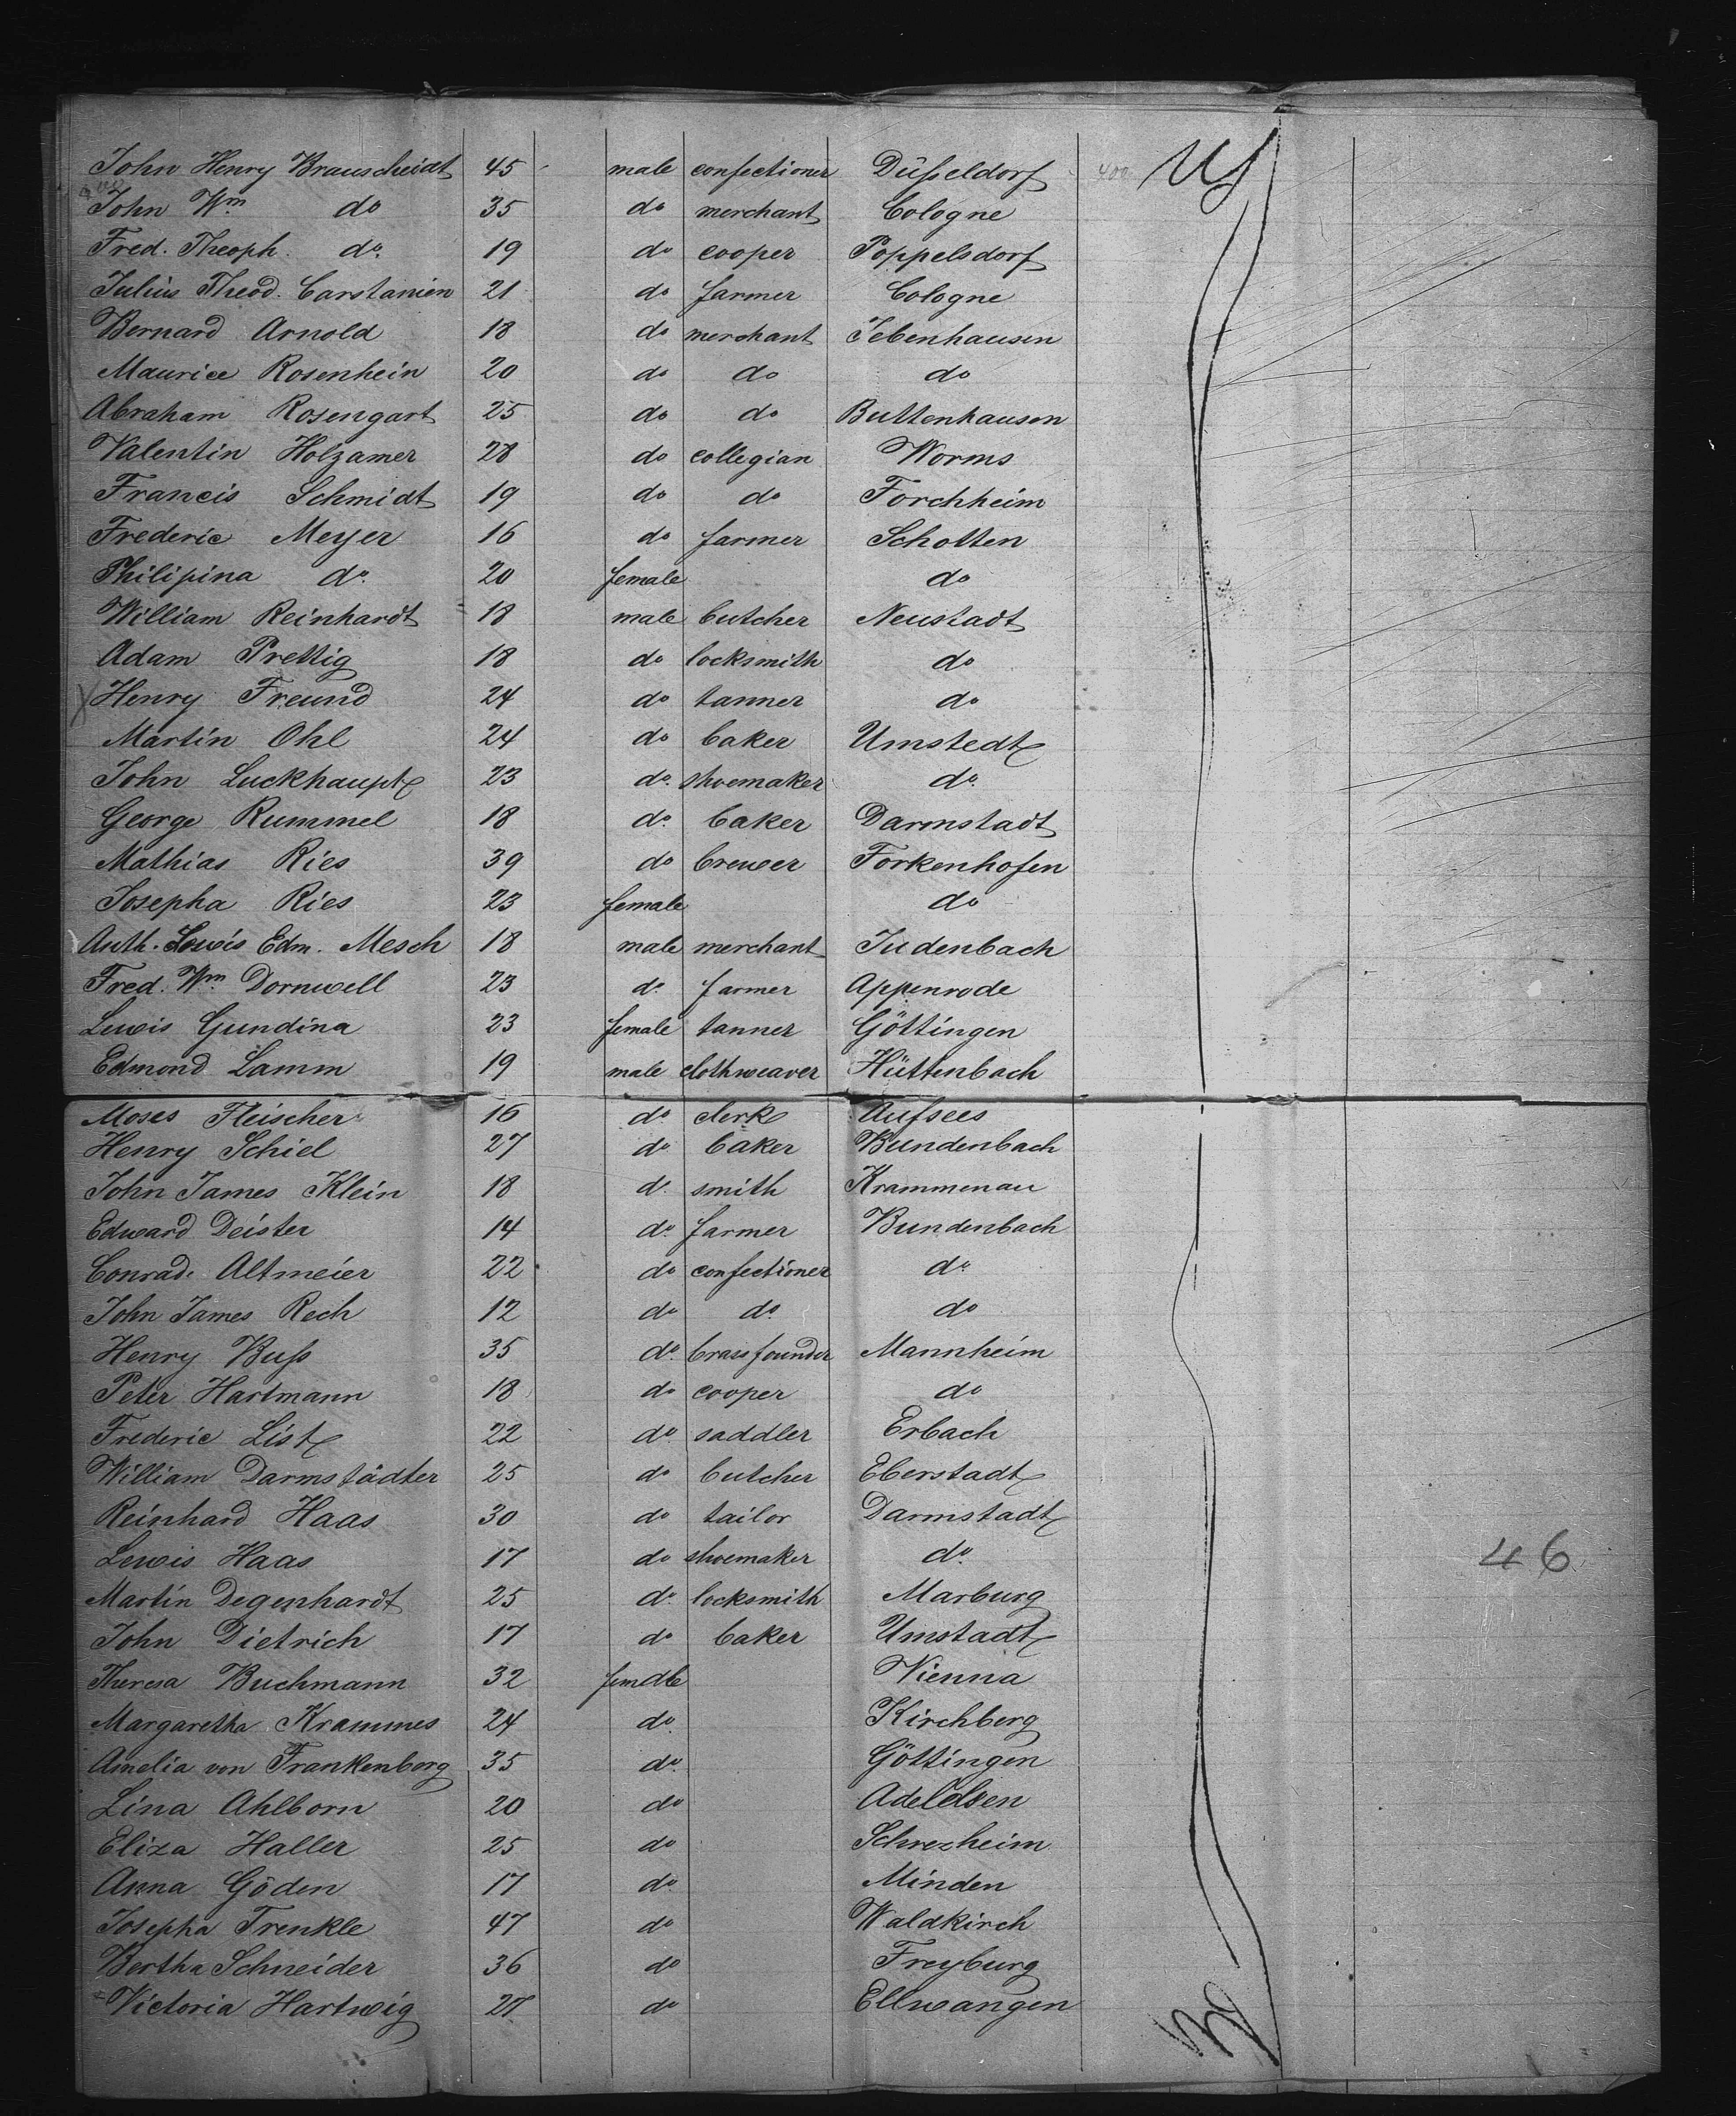 John Henry Brauscheidt 45 male confectioner Düsseldorf 400
John Wm do 35 do merchant Cologne
Fred. Theoph. do 19 do cooper Poppelsdorf
Julius Theod. Carstanien 21 do farmer Cologne
Bernard Arnold 18 do merchant Jebenhausen
Maurice Rosenhein 20 do do do
Abraham Rosengart 25 do do Buttenhausen
Valentin Holzamer 28 do collegian Worms
Francis Schmidt 19 do do Forchheim
Frederic Meyer 16 do farmer Schotten
Philipina do 20 female do
William Reinhardt 18 male butcher Neustadt
Adam Prettig 18 do locksmith do
Henry Freund 24 do tanner do
Martin Ohl 24 do baker Umstedt
John Luckhaupt 23 do shoemaker do
George Rummel 18 do baker Darmstadt
Mathias Ries 39 do brewer Forkenhofen
Josepha Ries 23 female do
Anth. Lewis Edm. Mesch 18 male merchant Judenbach
Fred. Wm Dornwell 23 do farmer Appenrode
Lewis Gundina 23 female tanner Göttingen
Edmond Lamm 19 male clothweaver Hüttenbach
Moses Fleischer 16 do clerk Aufsees
Henry Schiel 27 do baker Bundenbach
John James Klein 18 do smith Krammenau
Edward Deister 14 do farmer Bundenbach
Conrad Altmeier 22 do confectioner do
John James Rech 12 do do do
Henry Buss 35 do brassfounder Mannheim
Peter Hartmann 18 do cooper do
Frederic List 22 do saddler Erbach
William Darmstädter 25 do butcher Eberstadt
Reinhard Haas 30 do tailor Darmstadt
Lewis Haas 17 do shoemaker do
46
Martin Degenhardt 25 do locksmith Marburg
John Dietrich 17 do baker Umstadt
Theresa Buchmann 32 female Vienna
Margaretha Krammes 24 do Kirchberg
Amelia von Frankenberg 35 do Göttingen
Lina Ahlborn 20 do Adelelsen
Eliza Haller 25 do Schrezheim
Anna Göden 17 do Minden
Josepha Trenkle 47 do Waldkirch
Bertha Schneider 36 do Freyburg
Victoria Hartwig 27 do Ellwangen